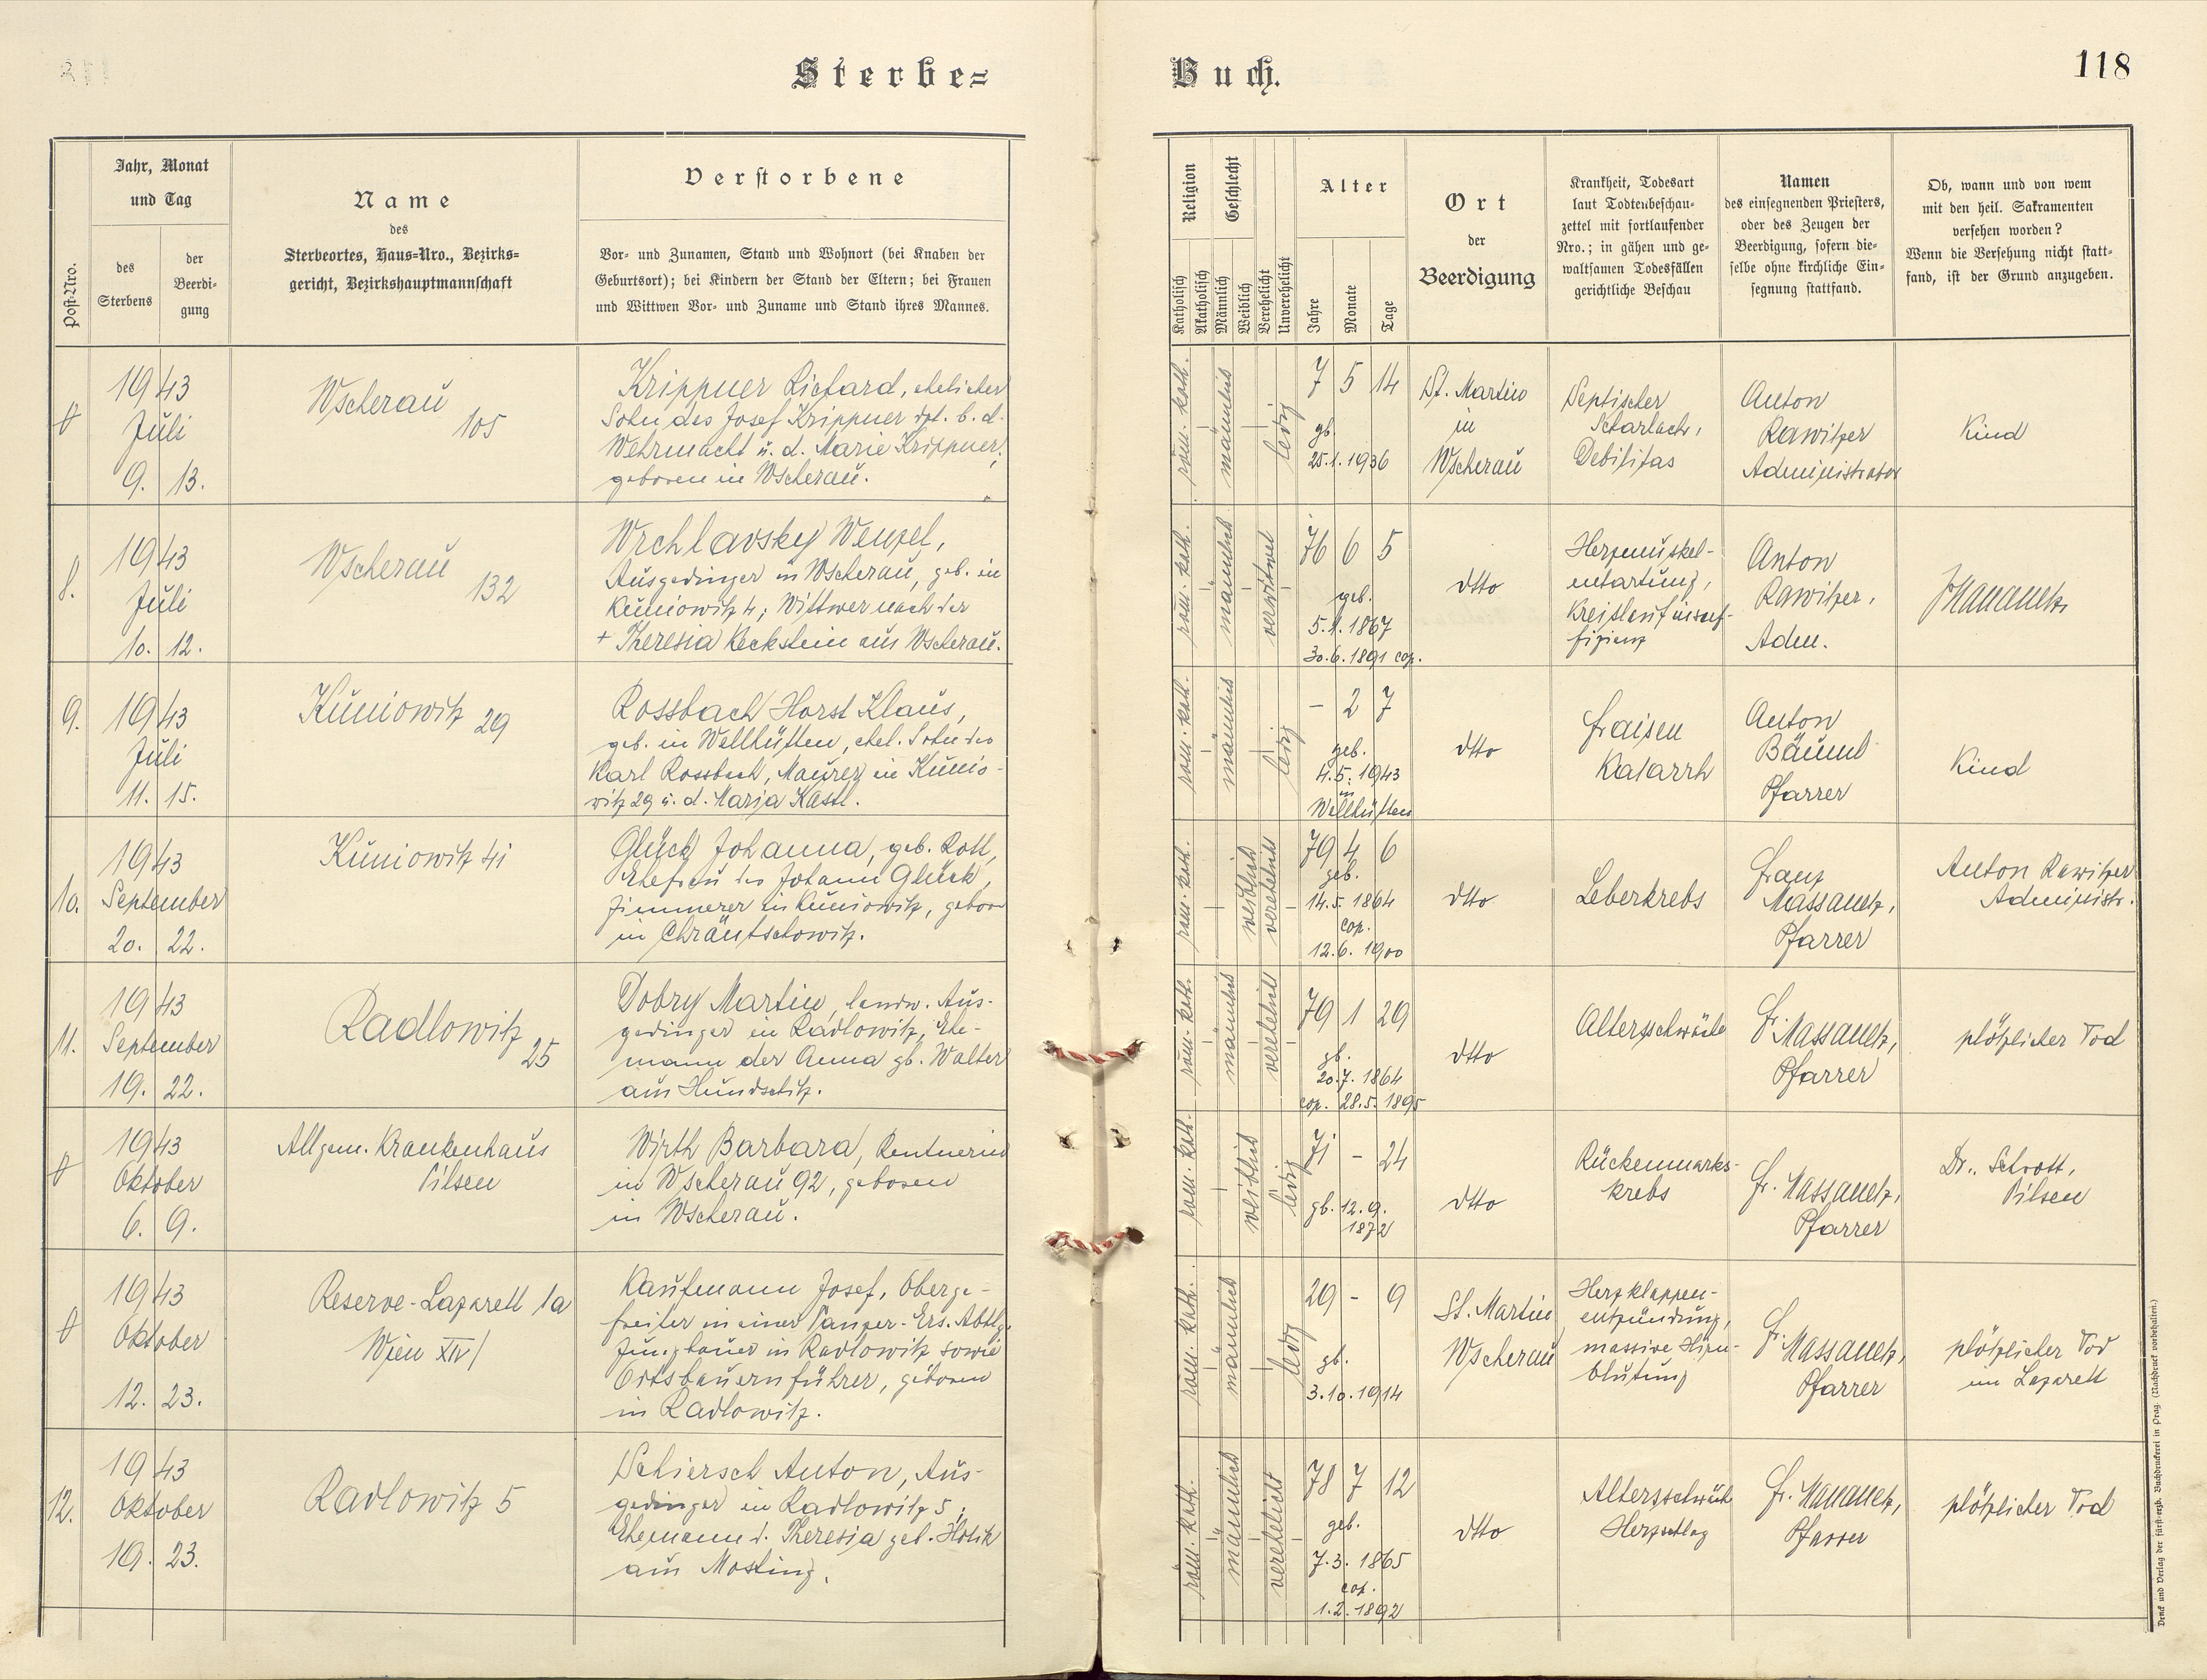 Sterbe=
Buch.
118
Post-Nro.
Jahr, Monat
und Tag
des
Sterbens
der
Beerdi-
gung
Name
des
Sterbeortes, Haus-Nro., Bezirks-
gericht, Bezirkshauptmannschaft
Verstorbene
Vor- und Zunamen, Stand und Wohnort (bei Knaben der
Geburtsort); bei Kindern der Stand der Eltern; bei Frauen
und Wittwen Vor- und Zuname und Stand ihres Mannes.
Religion
Katholisch
Akatholisch
Geschlecht
Männlich
Weiblich
Verehelicht
Unverehelicht
Alter
Jahre
Monate
Tage
Ort
der
Beerdigung
Krankheit, Todesart
laut Todtenbeschau-
zettel mit fortlaufender
Nro.; in gähen und ge-
waltsamen Todesfällen
gerichtliche Beschau
Namen
des einsegnenden Priesters,
oder des Zeugen der
Beerdigung, sofern die-
selbe ohne kirchliche Ein-
segnung stattfand.
Ob, wann und von wem
mit den heil. Sakramenten
versehen worden?
Wenn die Versehung nicht statt-
fand, ist der Grund anzugeben.
1943
Juli
9. 13.
Wscherau
105
Krippner Richard, ehelicher
Sohn des Josef Krippner dzt. b. d.
Wehrmacht u. d. Marie Krippner,
geboren in Wscherau.
röm. kath.
männlich
ledig
7 5 14
gb.
25.1.1936
St. Martin
in
Wscherau
Septischer
Scharlach,
Debilitas
Anton
Rawitzer
Administrator
Kind
8.
1943
Juli
10. 12.
Wscherau
132
Wrchlavsky Wenzel,
Ausgedinger in Wscherau, geb. in
Kuniowitz 4; Wittwer nach der
+ Theresia Keckstein aus Wscherau.
röm. kath.
männlich
verwitwet
76 6 5
geb.
5.1.1867
30.6.1891 cop.
dtto
Herzmuskel-
entartung,
Kreislaufinsuf-
fizienz
Anton
Rawitzer,
Adm.
9.
1943
Juli
11. 15.
Kuniowitz 29
Rossbach Horst Klaus,
geb. in Wellhütten, ehel. Sohn des
Karl Rossbach, Maurer in Kunio-
witz 29 u. d. Maria Kastl.
röm. kath.
männlich
ledig
- 2 7
geb.
4.5.1943
in
Wellhütten
dtto
Fraisen
Katarrh
Anton
Bäuml
Pfarrer
Kind
10.
1943
September
20. 22.
Kuniowitz 41
Glück Johanna, geb. Roth,
Ehefrau des Johann Glück,
Zimmerer in Kuniowitz, geboren
in Chrantschowitz.
röm. kath.
weiblich
verehelicht
79 4 6
geb.
14.5.1864
cop.
12.6.1900
dtto
Leberkrebs
Franz
Massanetz,
Pfarrer
Anton Rawitzer
Administr.
11.
1943
September
19. 22.
Radlowitz
25
Dobry Martin, landw. Aus-
gedinger in Radlowitz, Ehe-
mann der Anna gb. Walter
aus Hundschitz.
röm. kath.
männlich
verehelicht
79 1 29
gb.
20.7.1864
cop. 28.5.1895
dtto
Altersschwäche
Fr. Massanetz,
Pfarrer
plötzlicher Tod
1943
Oktober
6. 9.
Allgem. Krankenhaus
Pilsen
Wirth Barbara, Rentnerin
in Wscherau 92, geboren
in Wscherau.
röm. kath.
weiblich
ledig
71 - 24
gb. 12.9.
1872
dtto
Rückenmarks-
krebs
Fr. Massanetz,
Pfarrer
Dr. Schrott,
Pilsen
1943
Oktober
12. 23.
Reserve-Lazarett 1a
Wien XIV/
Kaufmann Josef, Oberge-
freiter in einer Panzer-Ers. Abtlg.
Jungbauer in Radlowitz sowie
Ortsbauernführer, geboren
in Radlowitz.
röm. kath.
männlich
ledig
29 - 9
gb.
3.10.1914
St. Martin
Wscherau
Herzklappen-
entzündung,
massive Hirn-
blutung
Fr. Massanetz,
Pfarrer
plötzlicher Tod
im Lazarett
12.
1943
Oktober
19. 23.
Radlowitz 5
Schiersch Anton, Aus-
gedinger in Radlowitz 5;
Ehemann d. Theresia geb. Holik
aus Mosting.
röm. kath.
männlich
verehelicht
78 7 12
geb.
7.3.1865
cop.
1.2.1892
dtto
Altersschwäch
Herzschlag
Fr. Massanetz,
Pfarrer
plötzlicher Tod
Druck und Verlag der fürst-erzb. Buchdruckerei in Prag. (Nachdruck vorbehalten.)